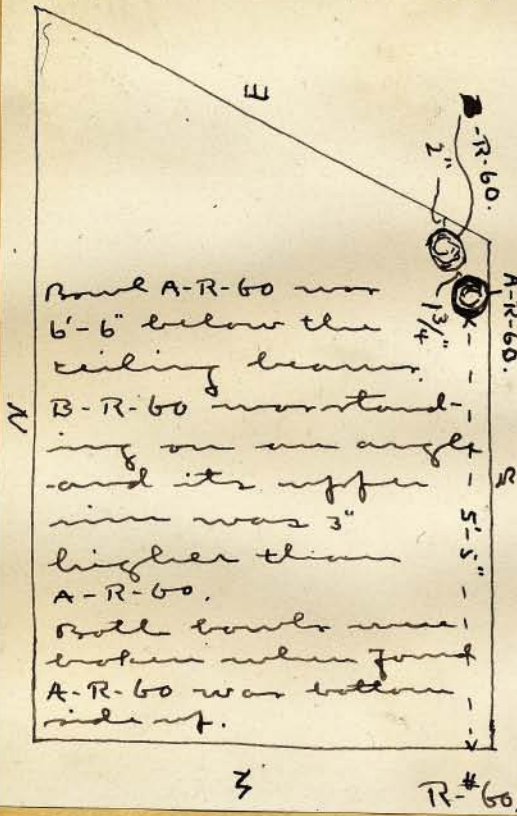 E
B-R-60.
2"
A-R-60.
1 3/4"
Bowl A-R-60 was
6'-6" below the
ceiling beams.
B-R-60 was stand-
ing on an angle
and its upper
rim was 3"
higher than
A-R-60.
Both bowls were
broken when found
A-R-60 was bottom
side up.
N
S
5'-5"
W
R-#60.